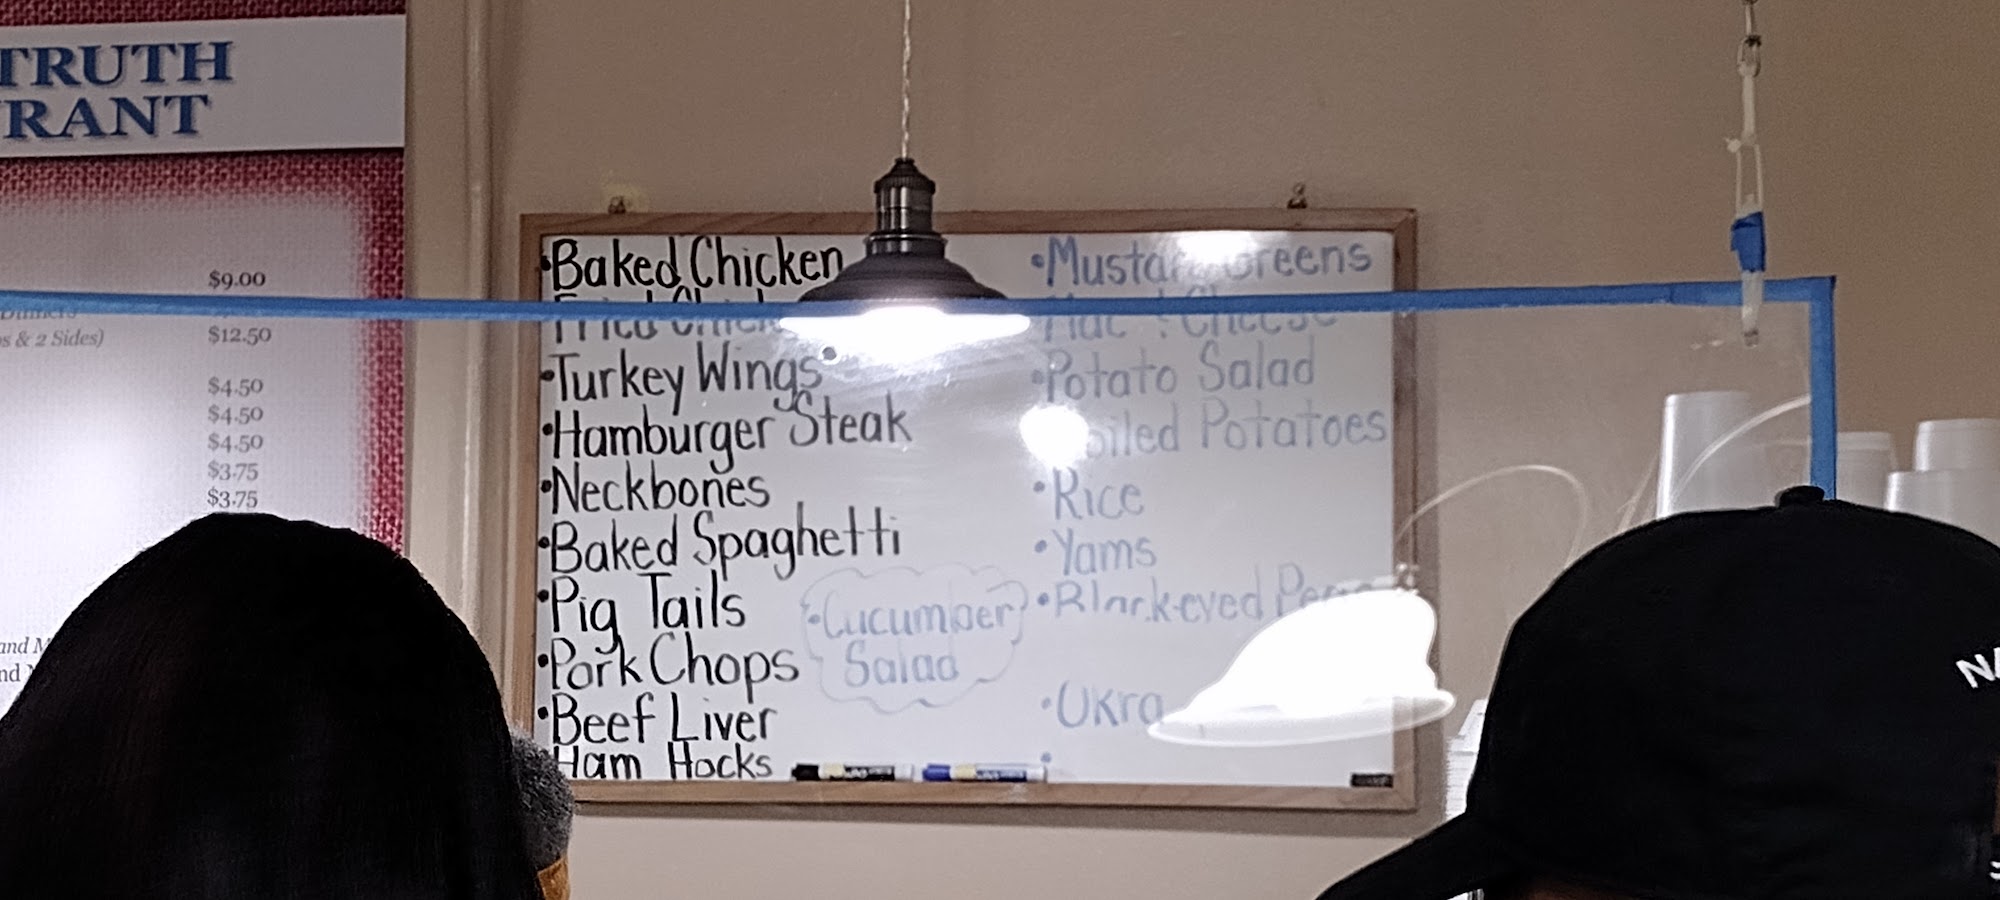 TRUTH
RANT
$9.00
Dinners
& 2 Sides)
$12.50
$4.50
$4.50
$4.50
$3.75
$3.75
and
•Baked Chicken
Fried
•Turkey Wings
•Hamburger Steak
•Neckbones
•Baked Spaghetti
•Pig Tails
•Pork Chops
•Beef Liver
Ham Hocks
•Cucumber
Salad
•Mustard Greens
Mac & Cheese
•Potato Salad
Potatoes
•Rice
•Yams
•Black-eyed
•Okra